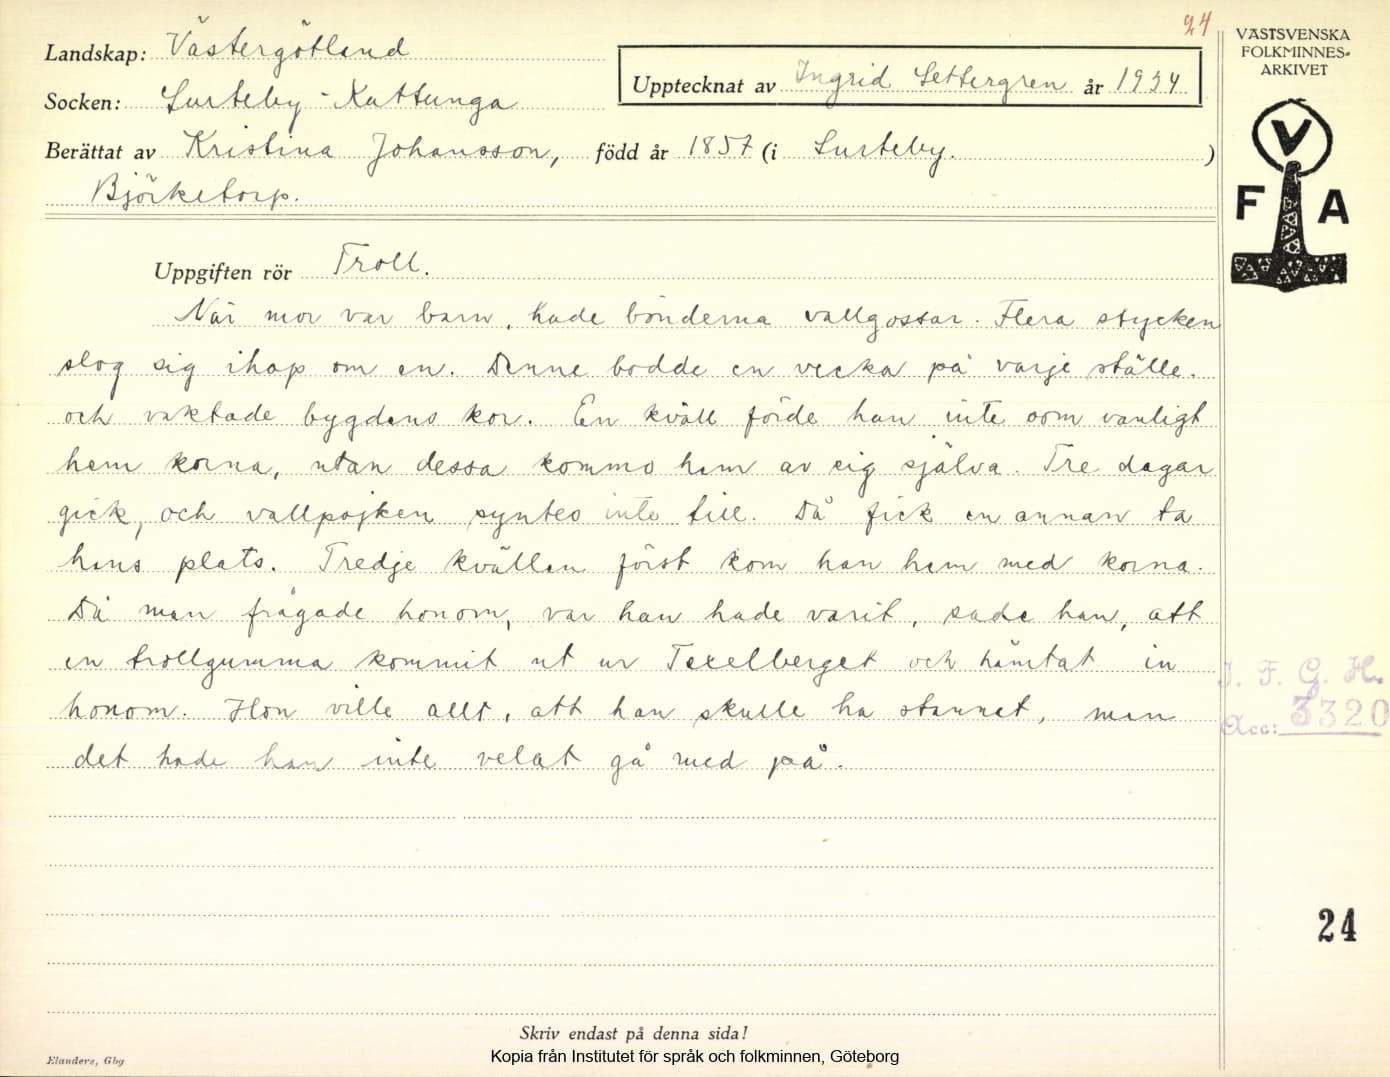 24
Landskap: Västergötland
VÄSTSVENSKA
FOLKMINNES-
ARKIVET
Upptecknat av Ingrid Settergren år 1934
Socken: Surteby-Kattunga
Berättat av Kristina Johansson, född år 1857 (i Surteby.)
Björketorp.
V
F A
Uppgiften rör Troll.
När mor var barn, hade bönderna vallgossar. Flera stycken
slog sig ihop om en. Denne bodde en vecka på varje ställe.
och vaktade bygdens kor. En kväll förde han inte som vanligt
hem korna, utan dessa kommo hem av sig själva. Tre dagar
gick, och vallpojken syntes inte till. Då fick en annan ta
hans plats. Tredje kvällen först kom han hem med korna.
Då man frågade honom, var han hade varit, sade han, att
en trollgumma kommit ut ur Texelberget och hämtat in
honom. Hon ville allt, att han skulle ha stannat, men
det hade han inte velat gå med på.
I. F. G. H.
Acc: 3320
24
Skriv endast på denna sida!
Elanders, Gbg
Kopia från Institutet för språk och folkminnen, Göteborg